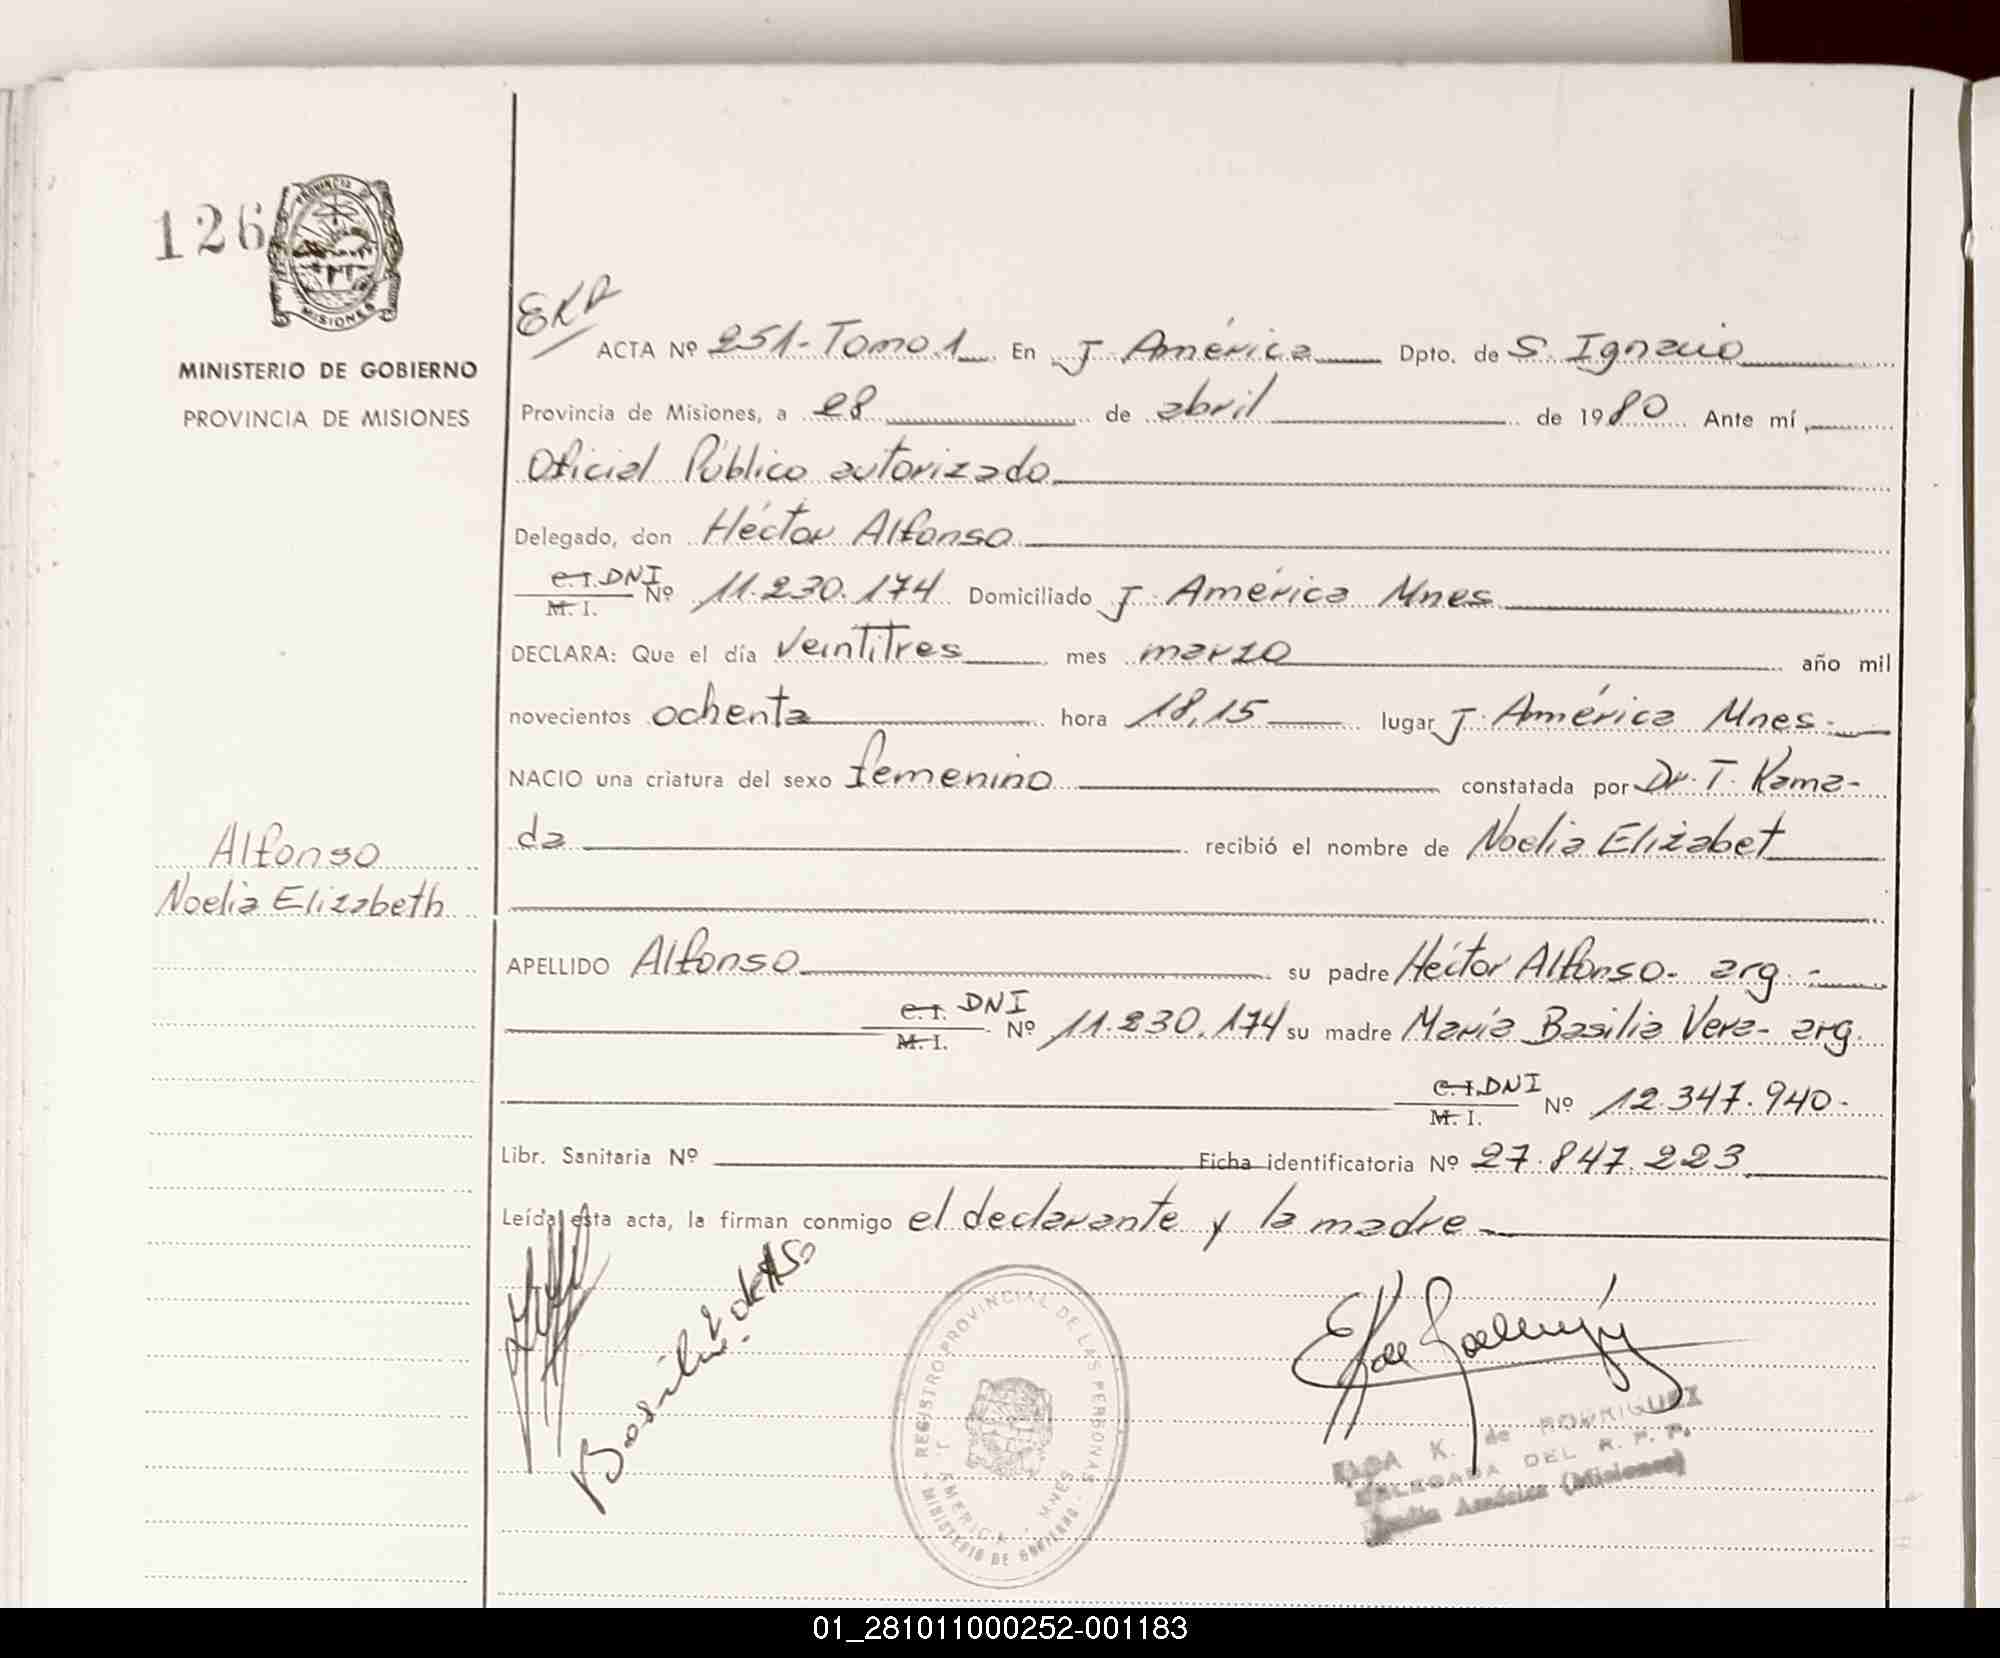 126
PROVINCIA DE
MISIONES
MINISTERIO DE GOBIERNO
PROVINCIA DE MISIONES
Alfonso
Noelia Elizabeth
EKR
ACTA Nº 251-Tomo 1 En J. América Dpto. de S. Ignacio
Provincia de Misiones, a 28 de abril de 1980 Ante mí,
Oficial Público autorizado
Delegado, don Héctor Alfonso
C. I. DNI
M. I. Nº 11.230.174 Domiciliado J. América Mnes
DECLARA: Que el día veintitres mes marzo año mil
novecientos ochenta hora 18,15 lugar J. América Mnes.
NACIO una criatura del sexo femenino constatada por Dr. T. Kama-
da recibió el nombre de Noelia Elizabet
APELLIDO Alfonso su padre Héctor Alfonso- arg.-
C. I. DNI
M. I. Nº 11.230.174 su madre María Basilia Vera- arg.
C. I. DNI
M. I. Nº 12.347.940.-
Libr. Sanitaria Nº Ficha identificatoria Nº 27.847.223
Leída esta acta, la firman conmigo el declarante y la madre-
REGISTRO PROVINCIAL DE LAS PERSONAS
J. AMERICA - MNES
MINISTERIO DE GOBIERNO
K. de RODRIGUEZ
DELEGADA DEL R. P. P.
Jardín América (Misiones)
01_281011000252-001183